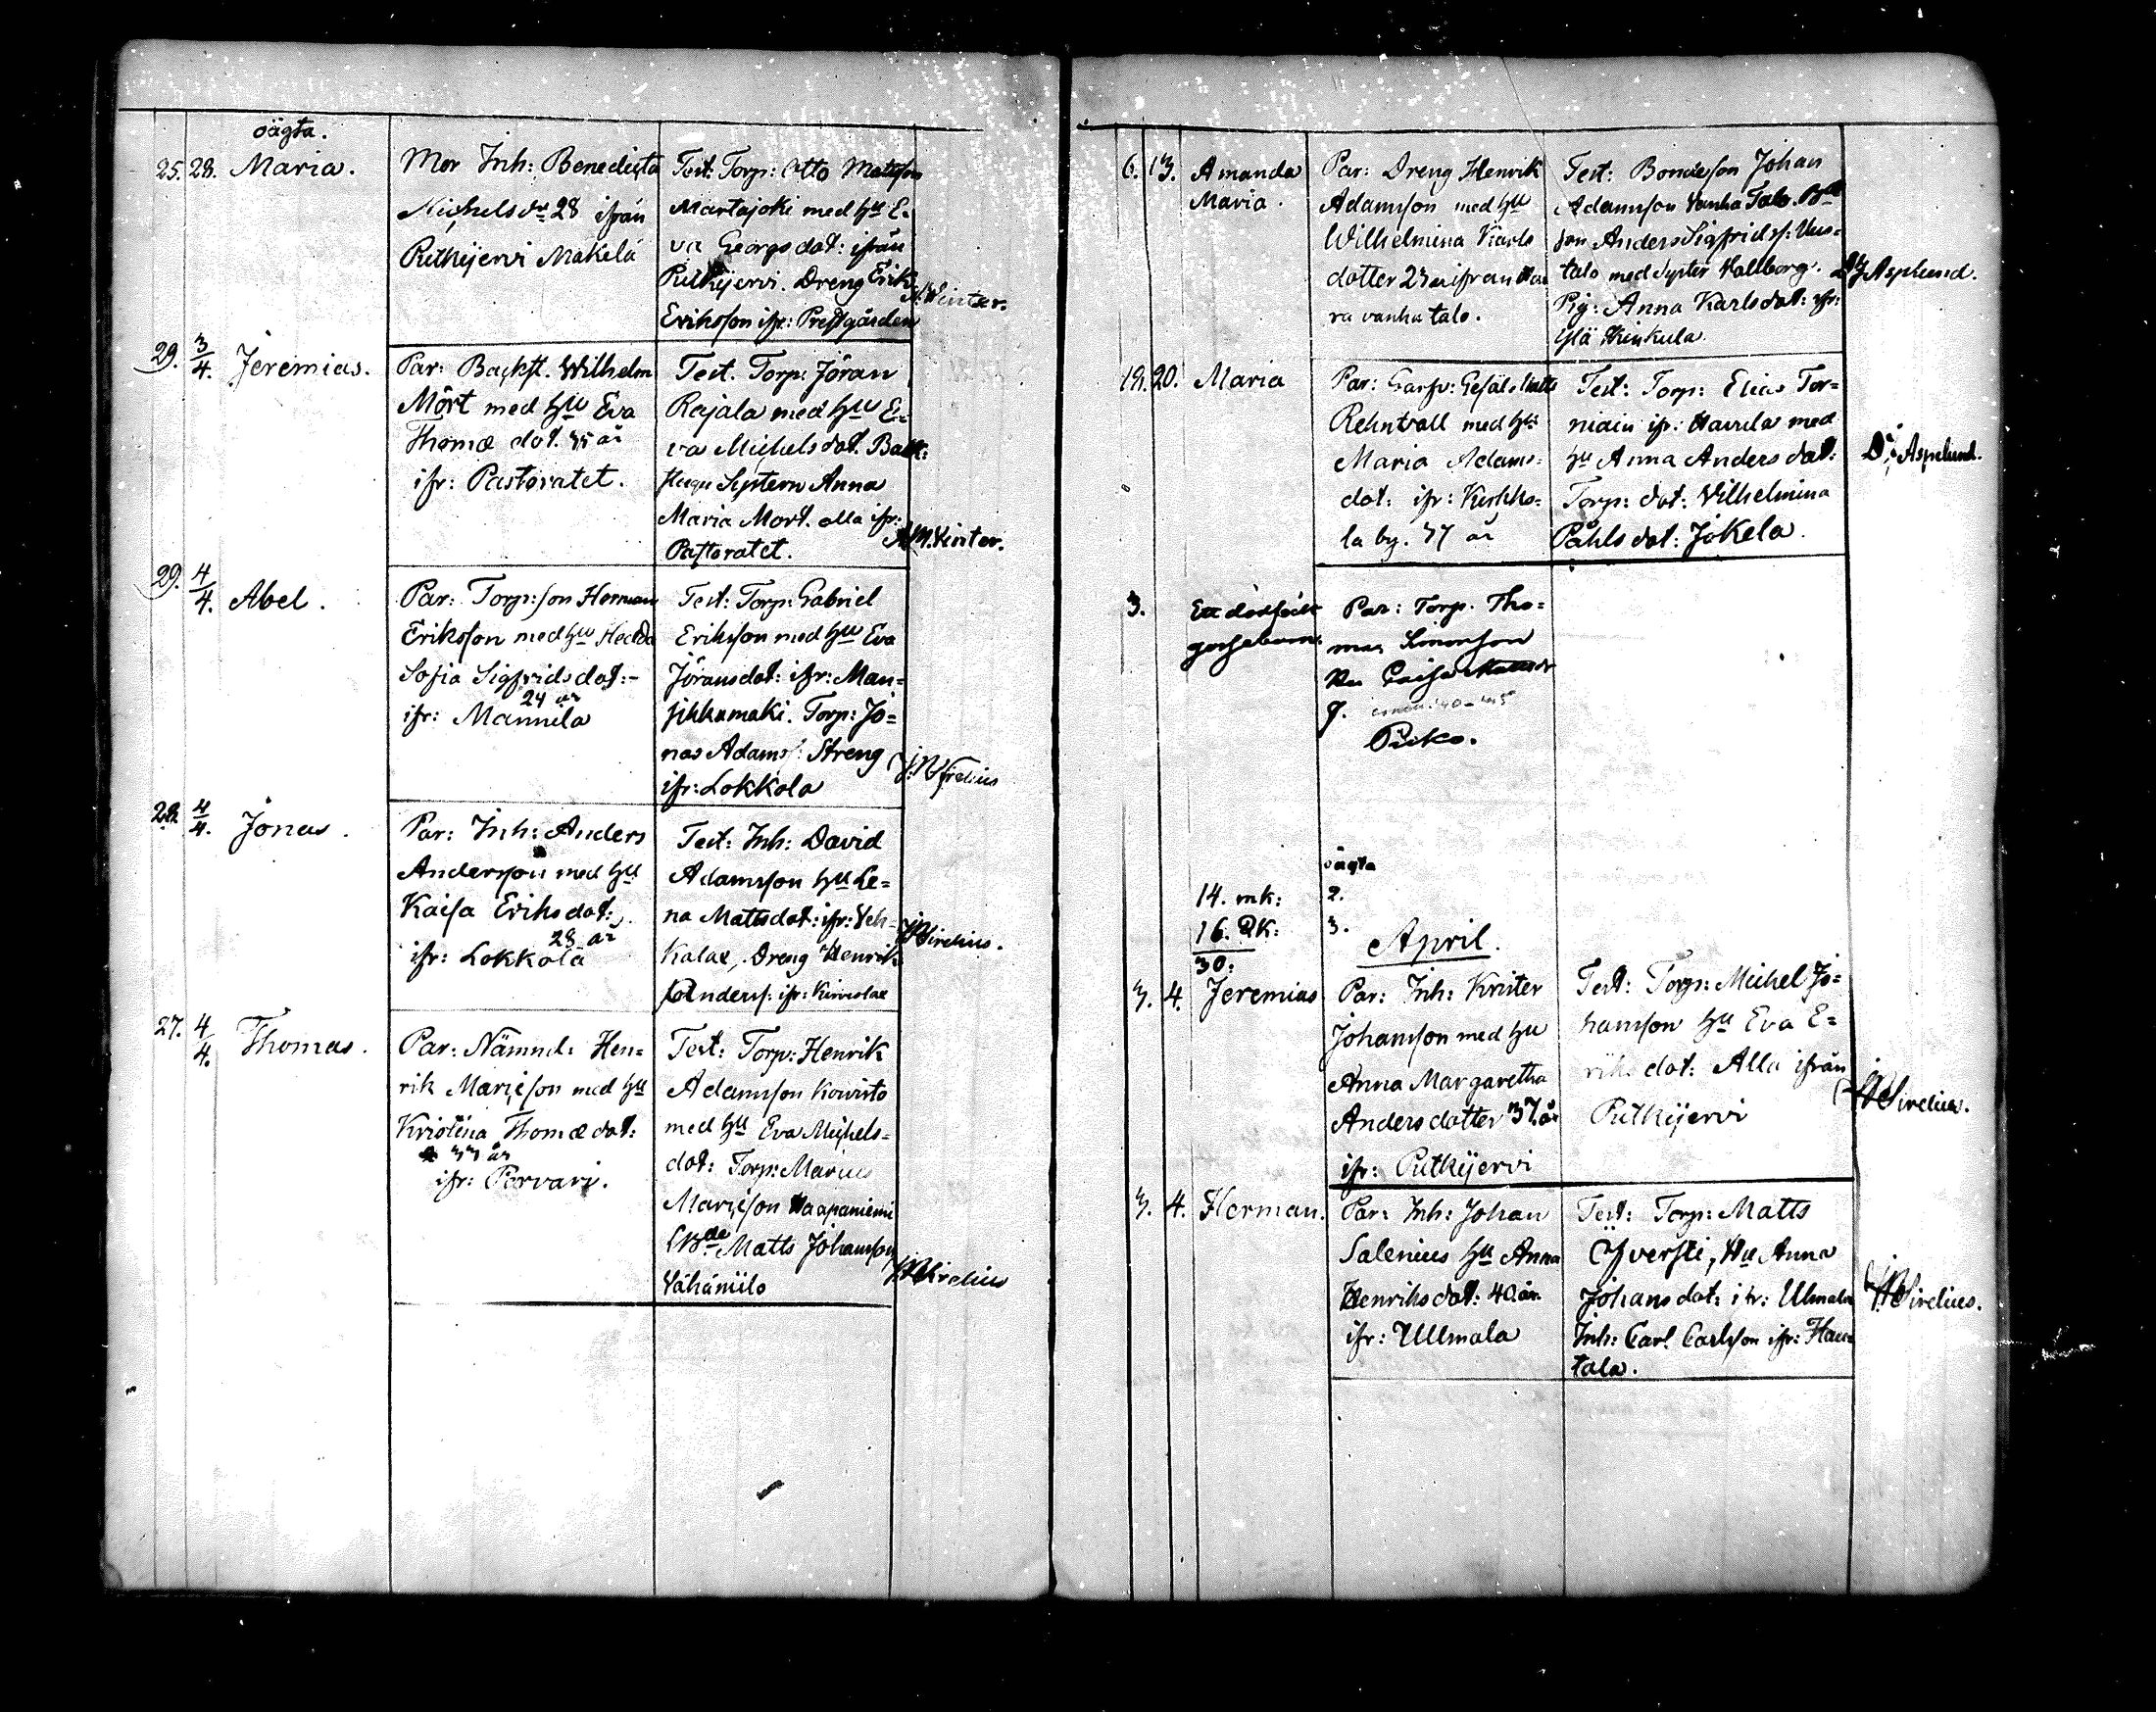 oägta.
25. 28. Maria.
Mor Inh: Benedicta
Michelsdr 28 ifrån
Putkijervi Mäkelä
Test: Torp: Otto Mattsson
Martajoki med hu E-
va Georgsdot: ifrån
Putkijervi. Dreng Erik
Eriksson ifr: Prestgården
Winter.
29. 3/4. Jeremias.
Par: Backst. Wilhelm
Mört med hu Eva
Thomædot. år
ifr: Pastoratet.
Test. Torp: Jöran
Rajala med hu E-
va Michelsdot. Back:
Maria Mört. alla ifr:
Pastoratet.
A.M. Winter.
29. 4/4. Abel.
Par: Torp:son Herman
Eriksson med hu Hedda
Sofia Sigfridsdot:-
24 år
ifr: Mannila
Test: Torp: Gabriel
Eriksson med hu Eva
Jöransdot: ifr: Man-
sikkamäki. Torp: Jo-
nas Adamss: Streng
ifr: Lokkola
Sirelius
28. 4/4. Jonas.
Par: Inh: Anders
Andersson med hu
Kaisa Eriksdot:
28 år
ifr: Lokkola
Test: Inh: David
Adamsson hu Le-
na Mattsdot: ifr:
Dreng Henrik
Anderss: ifr:
Sirelius.
27. 4/4. Thomas.
Par: Nämnd: Hen-
rik Mariæson med hu
Kristina Thomædot:
33 år
ifr: Porvari.
Test: Torp: Henrik
Adamsson Koivisto
med hu Eva Michels-
dot: Torp: Marius
Mariæson Haapaniemi
Bde Matts Johansson
Vähäniilo
Sirelius
6. 13. Amanda
Maria.
Par: Dreng Henrik
Adamsson med hu
Wilhelmina Karls
dotter 23 år ifrån
ra vanha talo.
Test: Bondeson Johan
Adamsson Vanha Talo. Bde
son Anders Sigfridss: Uus-
talo med Syster Vallborg.
Pig: Anna Karlsdot: ifr:
Ylä Kinkula.
Asplund.
19. 20. Maria
Par: Garfv: Gesäl Matts
Rehnvall med hu
Maria Adams-
dot: ifr: Kirkko-
la by. 37 år
Test: Torp: Elias Tor-
niain ifr: Havela med
hu Anna Andersdot:
Torp: dot: Vilhelmina
Påhlsdot: Jokela.
Asplund.
3. Ett dödfödt
gossebarn.
Par: Torp. Tho-
mas Simonsson
Hu Caisa
Piiko.
oägta
14. mk: 2.
16. Qk: 3.
30:
April.
3. 4. Jeremias
Par: Inh: Krister
Johansson med hu
Anna Margaretha
Andersdotter 37 år
ifr: Putkijervi
Test: Torp: Michel Jo-
hansson hu Eva E-
riksdot: Alla ifrån
Putkijervi
Sirelius.
3. 4. Herman.
Par: Inh: Johan
Salenius hu Anna
Henriksdot: 40 år
ifr: Ullmala
Test: Torp: Matts
Yversti, Hu Anna
Johansdot: ifr: Ulmala
Inh: Carl Carlsson ifr: Hau-
tala.
Sirelius.